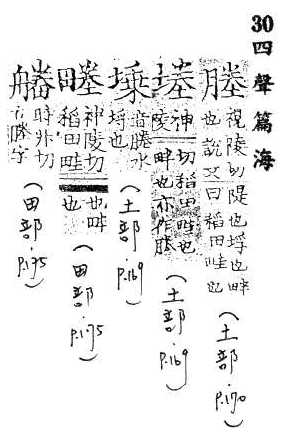 30 四聲篇海
塍 視陵切隄也埒也畔
也說文曰稻田畦也
(土部 p.170)
堘 神切稻田畦也
陵畔也亦作塍
(土部 p.169)
音勝水
埒也
(土部 p.169)
神陵切也畔
稻田畦也
(田部 p.175)
時升切
(田部 p.175)